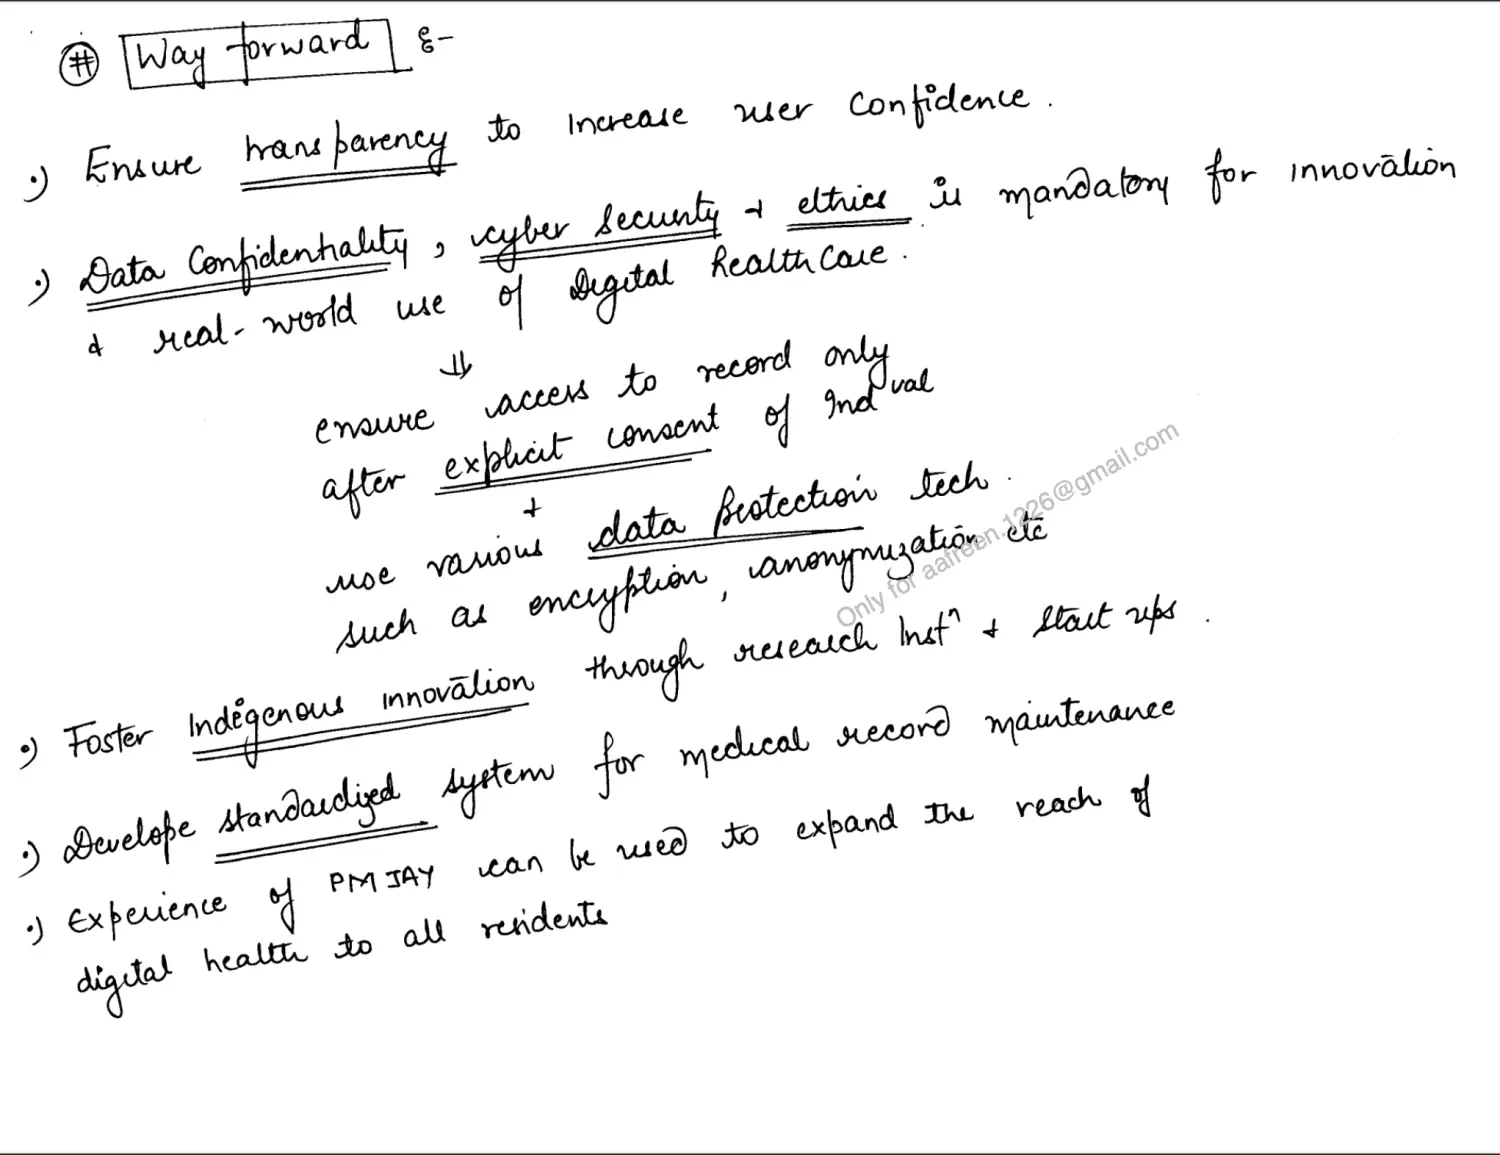 # Way forward :-
•) Ensure transparency to increase user confidence.
•) Data Confidentiality, cyber security + ethics is mandatory for innovation
+ real-world use of Digital healthcare.
⇓
ensure access to record only
after explicit consent of Ind^val
+
use various data protection tech.
such as encryption, anonymization etc
•) Foster Indigenous innovation through research Inst^n + Start ups.
•) Develope standardized system for medical record maintenance
•) Experience of PMJAY can be used to expand the reach of
digital health to all residents
Only for aafreen.1226@gmail.com